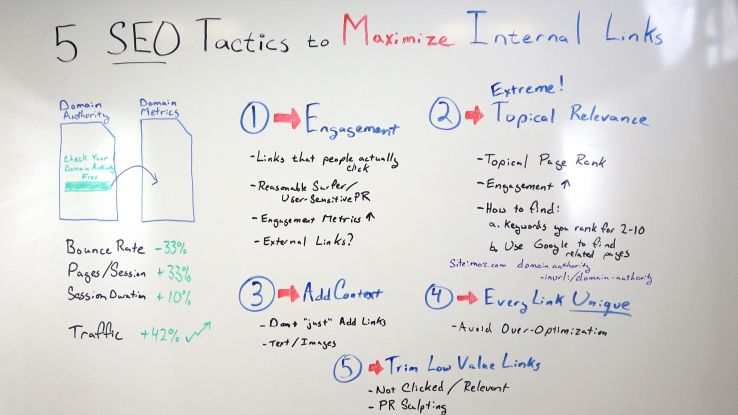 5 SEO Tactics to Maximize Internal Links
Domain Authority
Domain Metrics
Check Your
Domain Authority
Free
Bounce Rate -33%
Pages/Session +33%
Session Duration +10%
Traffic +42%
1 Engagement
- Links that people actually
click
- Reasonable Surfer/
User-Sensitive PR
- Engagement Metrics ↑
- External Links?
Extreme!
2 Topical Relevance
- Topical Page Rank
- Engagement ↑
- How to find:
a. Keywords you rank for 2-10
b. Use Google to find
related pages
Site:moz.com domain authority
-inurl:/domain-authority
3 Add Context
- Don't "just" Add Links
- Text/Images
4 Every Link Unique
- Avoid Over-Optimization
5 Trim Low Value Links
- Not Clicked / Relevant
- PR Sculpting